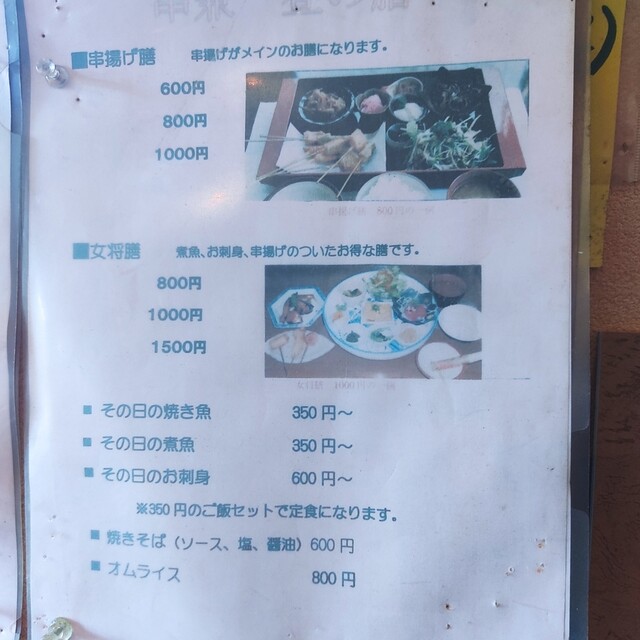 ■串揚げ膳 串揚げがメインのお膳になります。
600円
800円
1000円
串揚げ膳 800円の一例
■女将膳 煮魚、お刺身、串揚げのついたお得な膳です。
800円
1000円
1500円
女将膳 1000円の一例
■ その日の焼き魚 350円～
■ その日の煮魚 350円～
■ その日のお刺身 600円～
※350円のご飯セットで定食になります。
■ 焼きそば（ソース、塩、醤油）600円
■ オムライス 800円